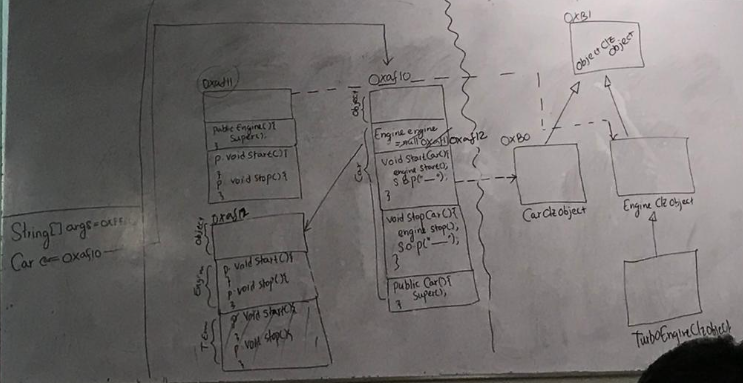 String[] args=0xff
Car c= 0xaf10
0xaf11
public Engine(){
Super();
}
p void Start(){
}
p void Stop(){
}
0xaf12
Object
Engine
p void Start(){
}
p void Stop(){
}
p void Start(){
}
p void Stop(){
}
0xaf10
Object
Car
Engine engine
=null 0xaf11 0xaf12
void StartCar(){
engine.start();
S.O.p("—");
}
void StopCar(){
engine.stop();
S.O.p("—");
}
public Car(){
Super();
}
0XB1
ObjectClz
Object
0XB0
CarClzObject
EngineClzObject
TurboEngineClzObject